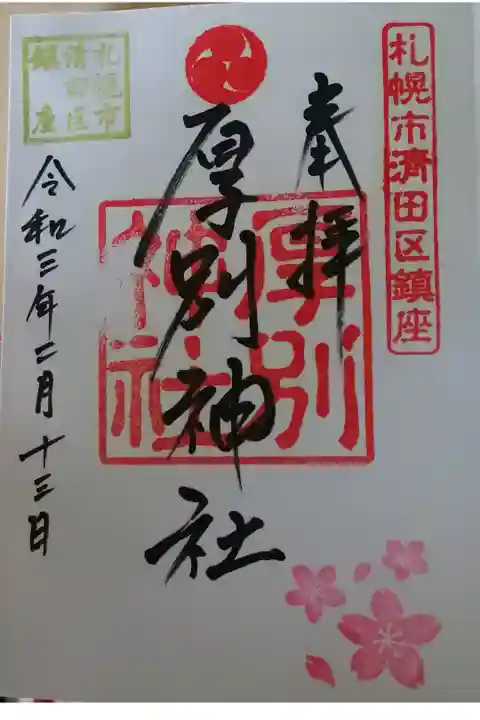 札幌市清田区鎮座
奉拝
厚別神社
厚別
神社
札幌市
清田区
鎮座
令和三年二月十三日